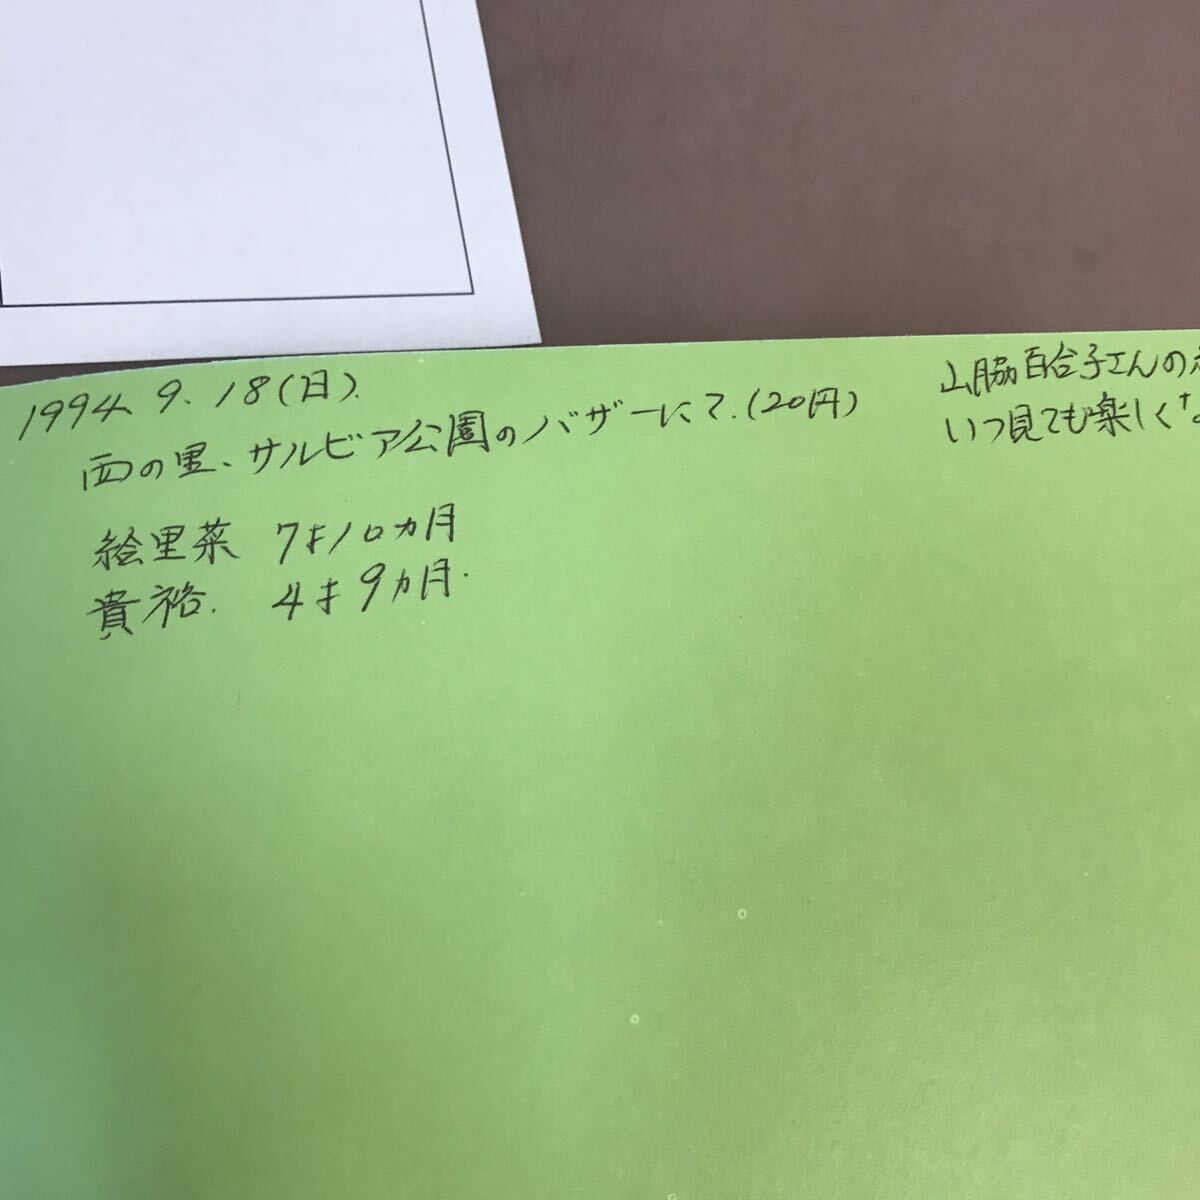 1994. 9. 18(日).
西の里、サルビア公園のバザーにて.(20円)
絵里菜 7才10ヵ月
貴裕. 4才9ヵ月.
山脇百合子さんの
いつ見ても楽しく